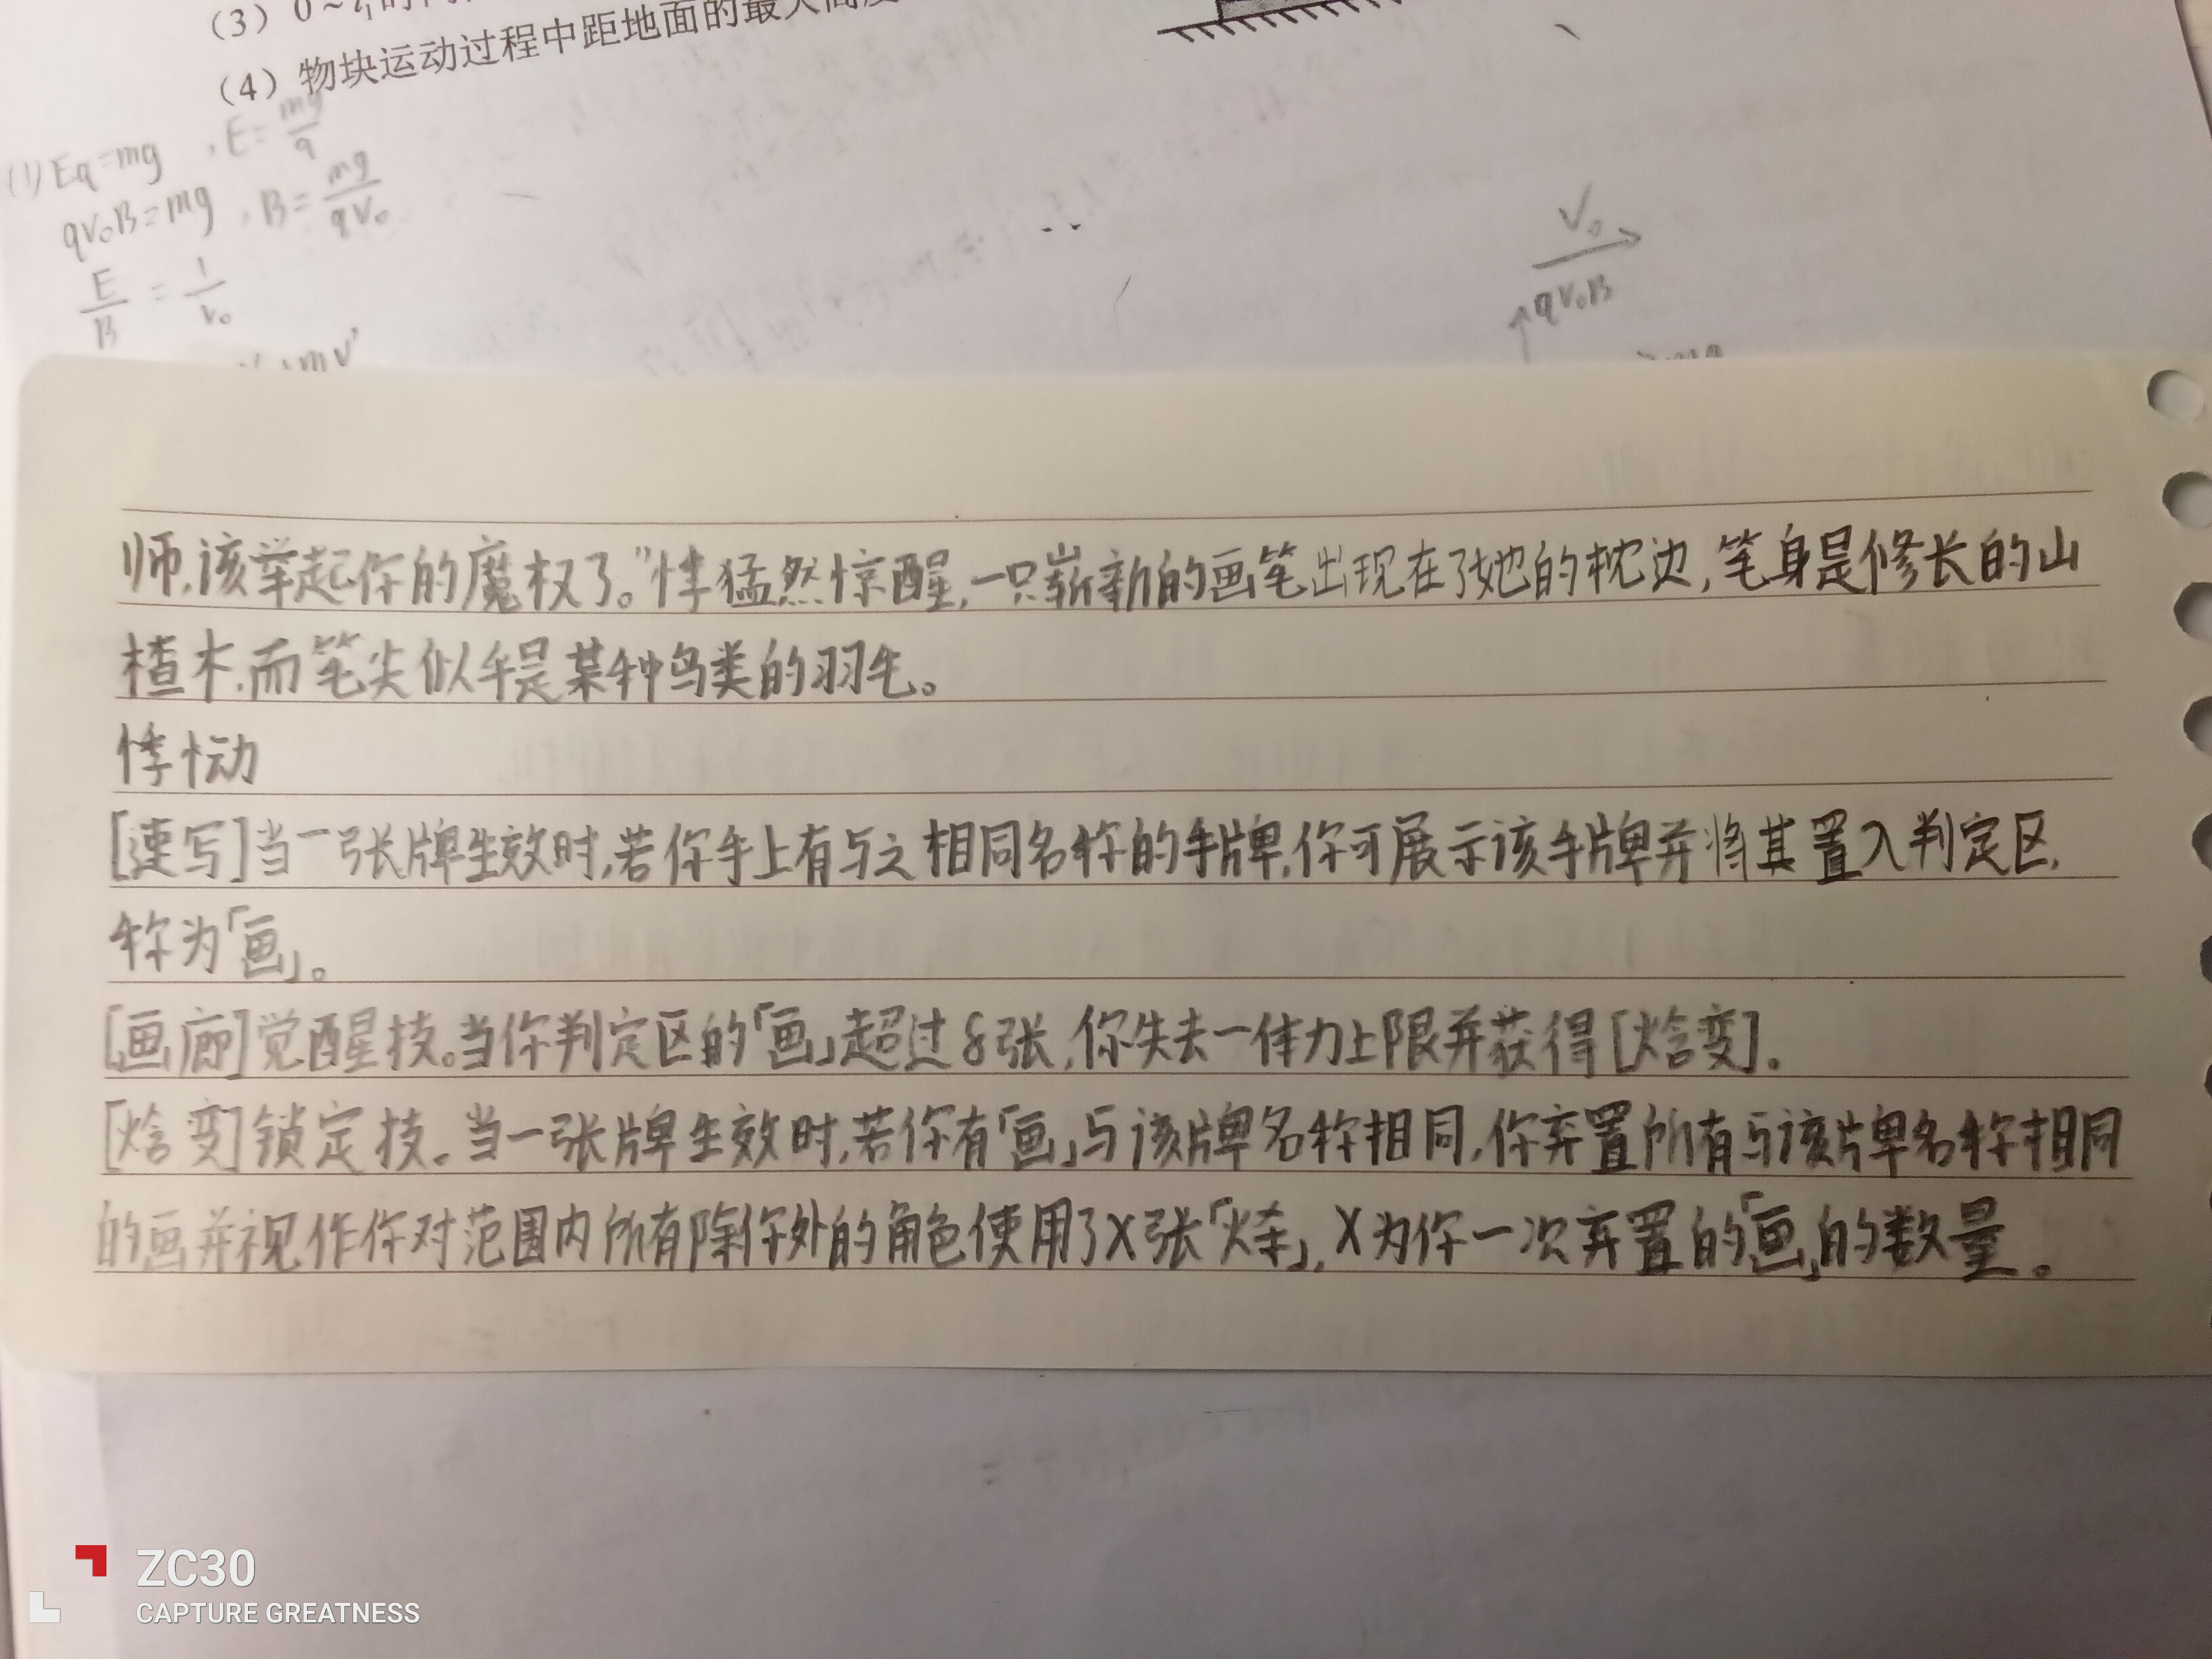 (3) 0~t₁的
(4) 物块运动过程中距地面的最大高度
(1) Eq=mg , E=mg/q
qv₀B=mg , B=mg/qv₀
E/B = 1/v₀
mv'
V₀
qv₀B
mg
师,该举起你的魔杖了。”悸猛然惊醒,一只崭新的画笔出现在了她的枕边,笔身是修长的山
楂木,而笔尖似乎是某种鸟类的羽毛。
悸恸
[速写]当一张牌生效时,若你手上有与之相同名称的手牌,你可展示该手牌并将其置入判定区,
称为「画」。
[画廊]觉醒技。当你判定区的「画」超过8张,你失去一体力上限并获得[焓变]。
[焓变]锁定技。当一张牌生效时,若你有「画」与该牌名称相同,你弃置所有与该牌名称相同
的画并视作你对范围内所有除你外的角色使用了X张「火杀」,X为你一次弃置的「画」的数量。
ZC30
CAPTURE GREATNESS